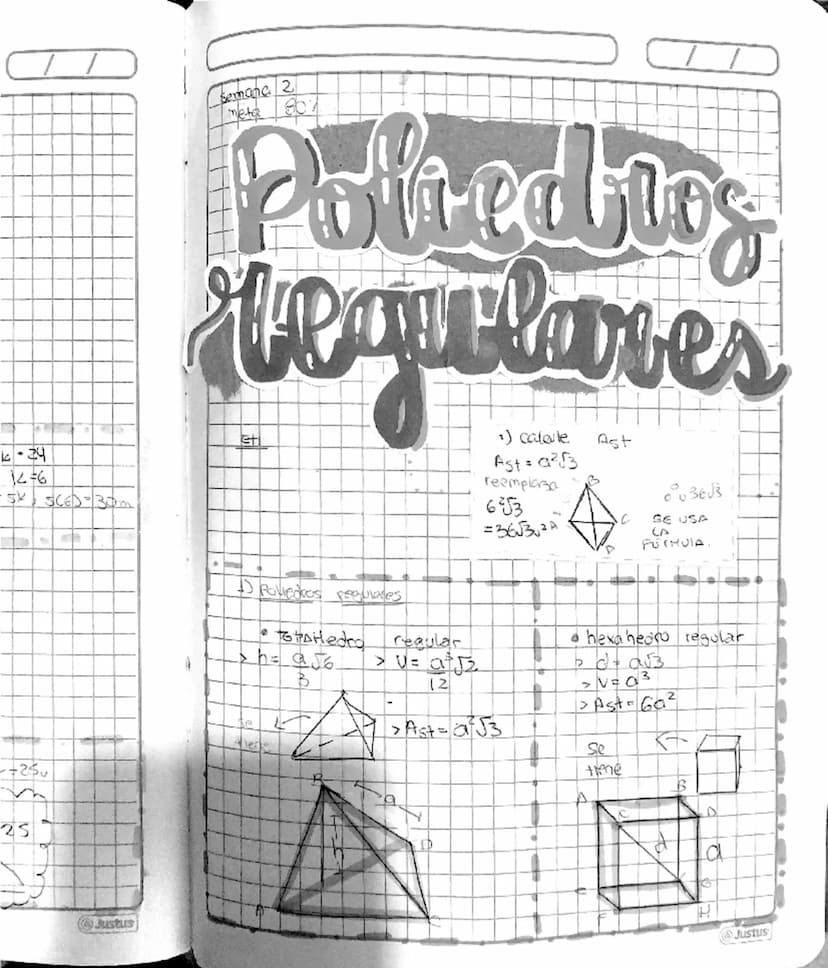 / /
k = 24
K=6
5K, 5(6)=30m
=25u
25
Justus
/ /
Semana 2
meta 80%
Poliedros
regulares
1) calcule Ast
Ast = a²√3
reemplaza
6²√3
=36√3u²
A
B
C
D
36√3
SE USA
LA
FÓRMULA.
1) Poliedros regulares
• tetrahedro regular
> h = a√6
3
> V = a³√2
12
> Ast = a²√3
se
tiene
B
a
h
D
A
C
• hexahedro regular
> d = a√3
> V = a³
> Ast = 6a²
Se
tiene
A
B
C
D
d
a
E
G
F
H
Justus